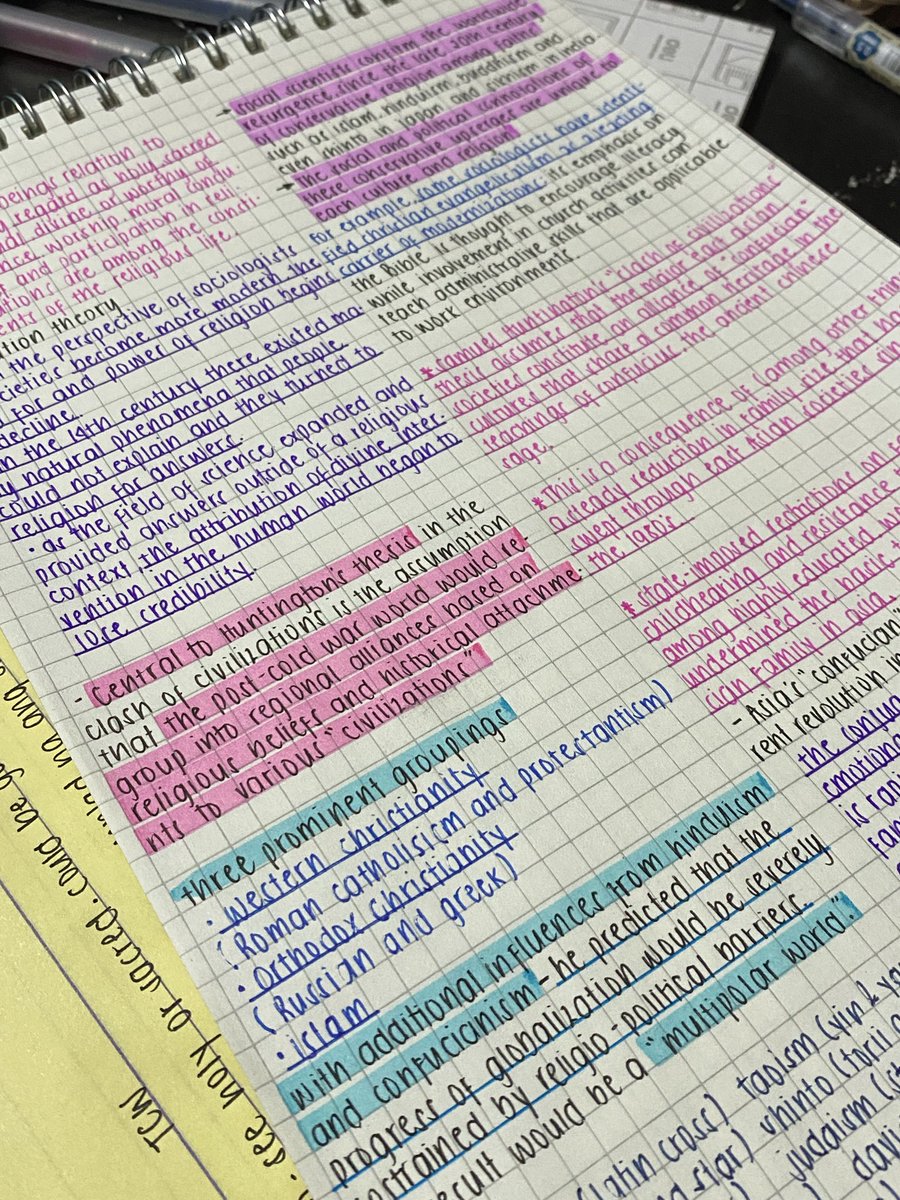 beings relation to
regard as holy, sacred
divine or worthy of
worship, moral condu
and participation in reli-
are among the consti-
of the religious life.
theory
the perspective of sociologists
become more modern the
for and power of religion begins
decline.
the 19th century there existed ma
natural phenomena that people
could not explain and they turned to
religion for answers.
· as the field of science expanded and
provided answers outside of a religious
context, the attribution of divine inter-
vention in the human world began to
lose credibility.
- Central to Huntington's thesis in the
clash of civilization's is the assumption
that the post-cold war world would re
group into regional alliances based on
religious beliefs and historical attachme
nts to various "civilizations"
three prominent groupings
· western christianity
(Roman catholisism and protestantism)
· orthodox christianity
(Russian and greek)
· islam
with additional influences from hinduism
and confucionism - he predicted that the
progress of globalization would be severely
constrained by religio-political barriers.
result would be a "multipolar world".
→ social scientists confirm the worldwide
resurgence since the late 20th century
of conservative religion among faiths
such as islam, hinduism, buddhism and
even shinto in Japan and sikhism in India
→ the social and political connotations of
these conservative upsurges are unique to
each culture and religion
For example, some sociologists have identi-
fied christian evangelicalism as a leading
carrier of modernization: its emphasis on
the Bible is thought to encourage literacy
while involvement in church activities can
teach administrative skills that are applicable
to work environments.
* samuel Huntington's "clash of civilizations"
thesis assumes that the major east asian
societies constitute an alliance of "confucian"
cultures that share a common heritage in the
teachings of confucius, the ancient chinese
sage.
* This is a consequence of (among other thin
a steady reduction in family size that ha
swept through east Asian societies sin
the 1980's
* state-imposed restrictions on
childbearing and resistance
among highly educated
undermined the basic
cian family in asia.
- Asia's "confucian"
rent revolution in
the conjug
emotiona
is rapi
fam
(latin cross) taoism (yin & yan
star) shinto (torii
judaism (s
davi
see holy or sacred. could be go
TCW